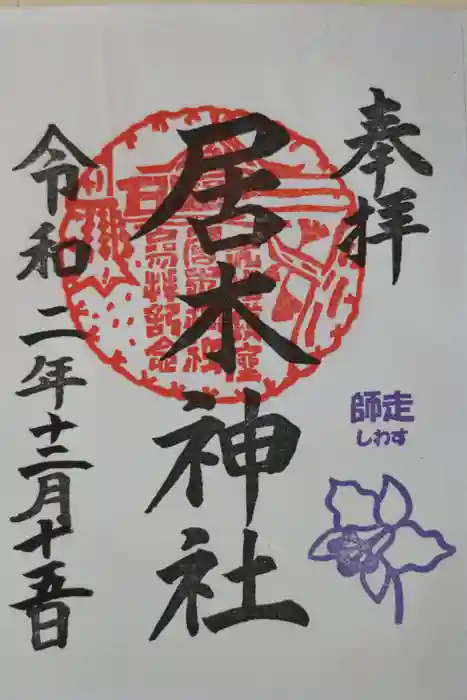 奉拝
師走
しわす
居木神社
令和二年十二月十五日